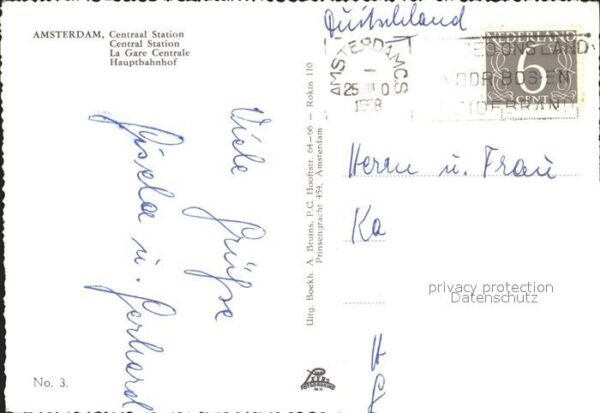 AMSTERDAM, Centraal Station
Central Station
La Gare Centrale
Hauptbahnhof
Viele Grüße
Gisela u. Gerhard
No. 3.
Uitg. Boekh. A. Bruins, P.C. Hooftstr. 64-66 — Rokin 110
Prinsengracht 454, Amsterdam
Deutschland
AMSTERDAM C.S
25
0
1958
NEDERLAND
6
CENT
ONS LAND
VOOR BOS EN
HEIDEBRAND
Herrn u. Frau
Ka
privacy protection
Datenschutz
H